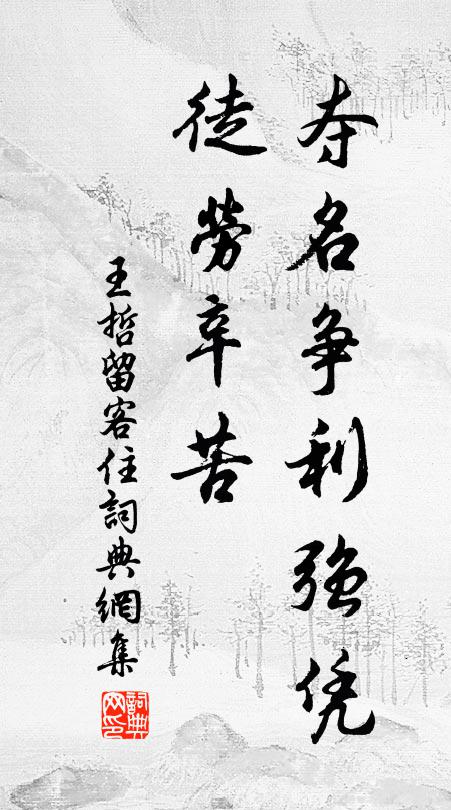 夺名争利强凭
徒勞辛苦
王哲留客住詞典網集
詞典网印